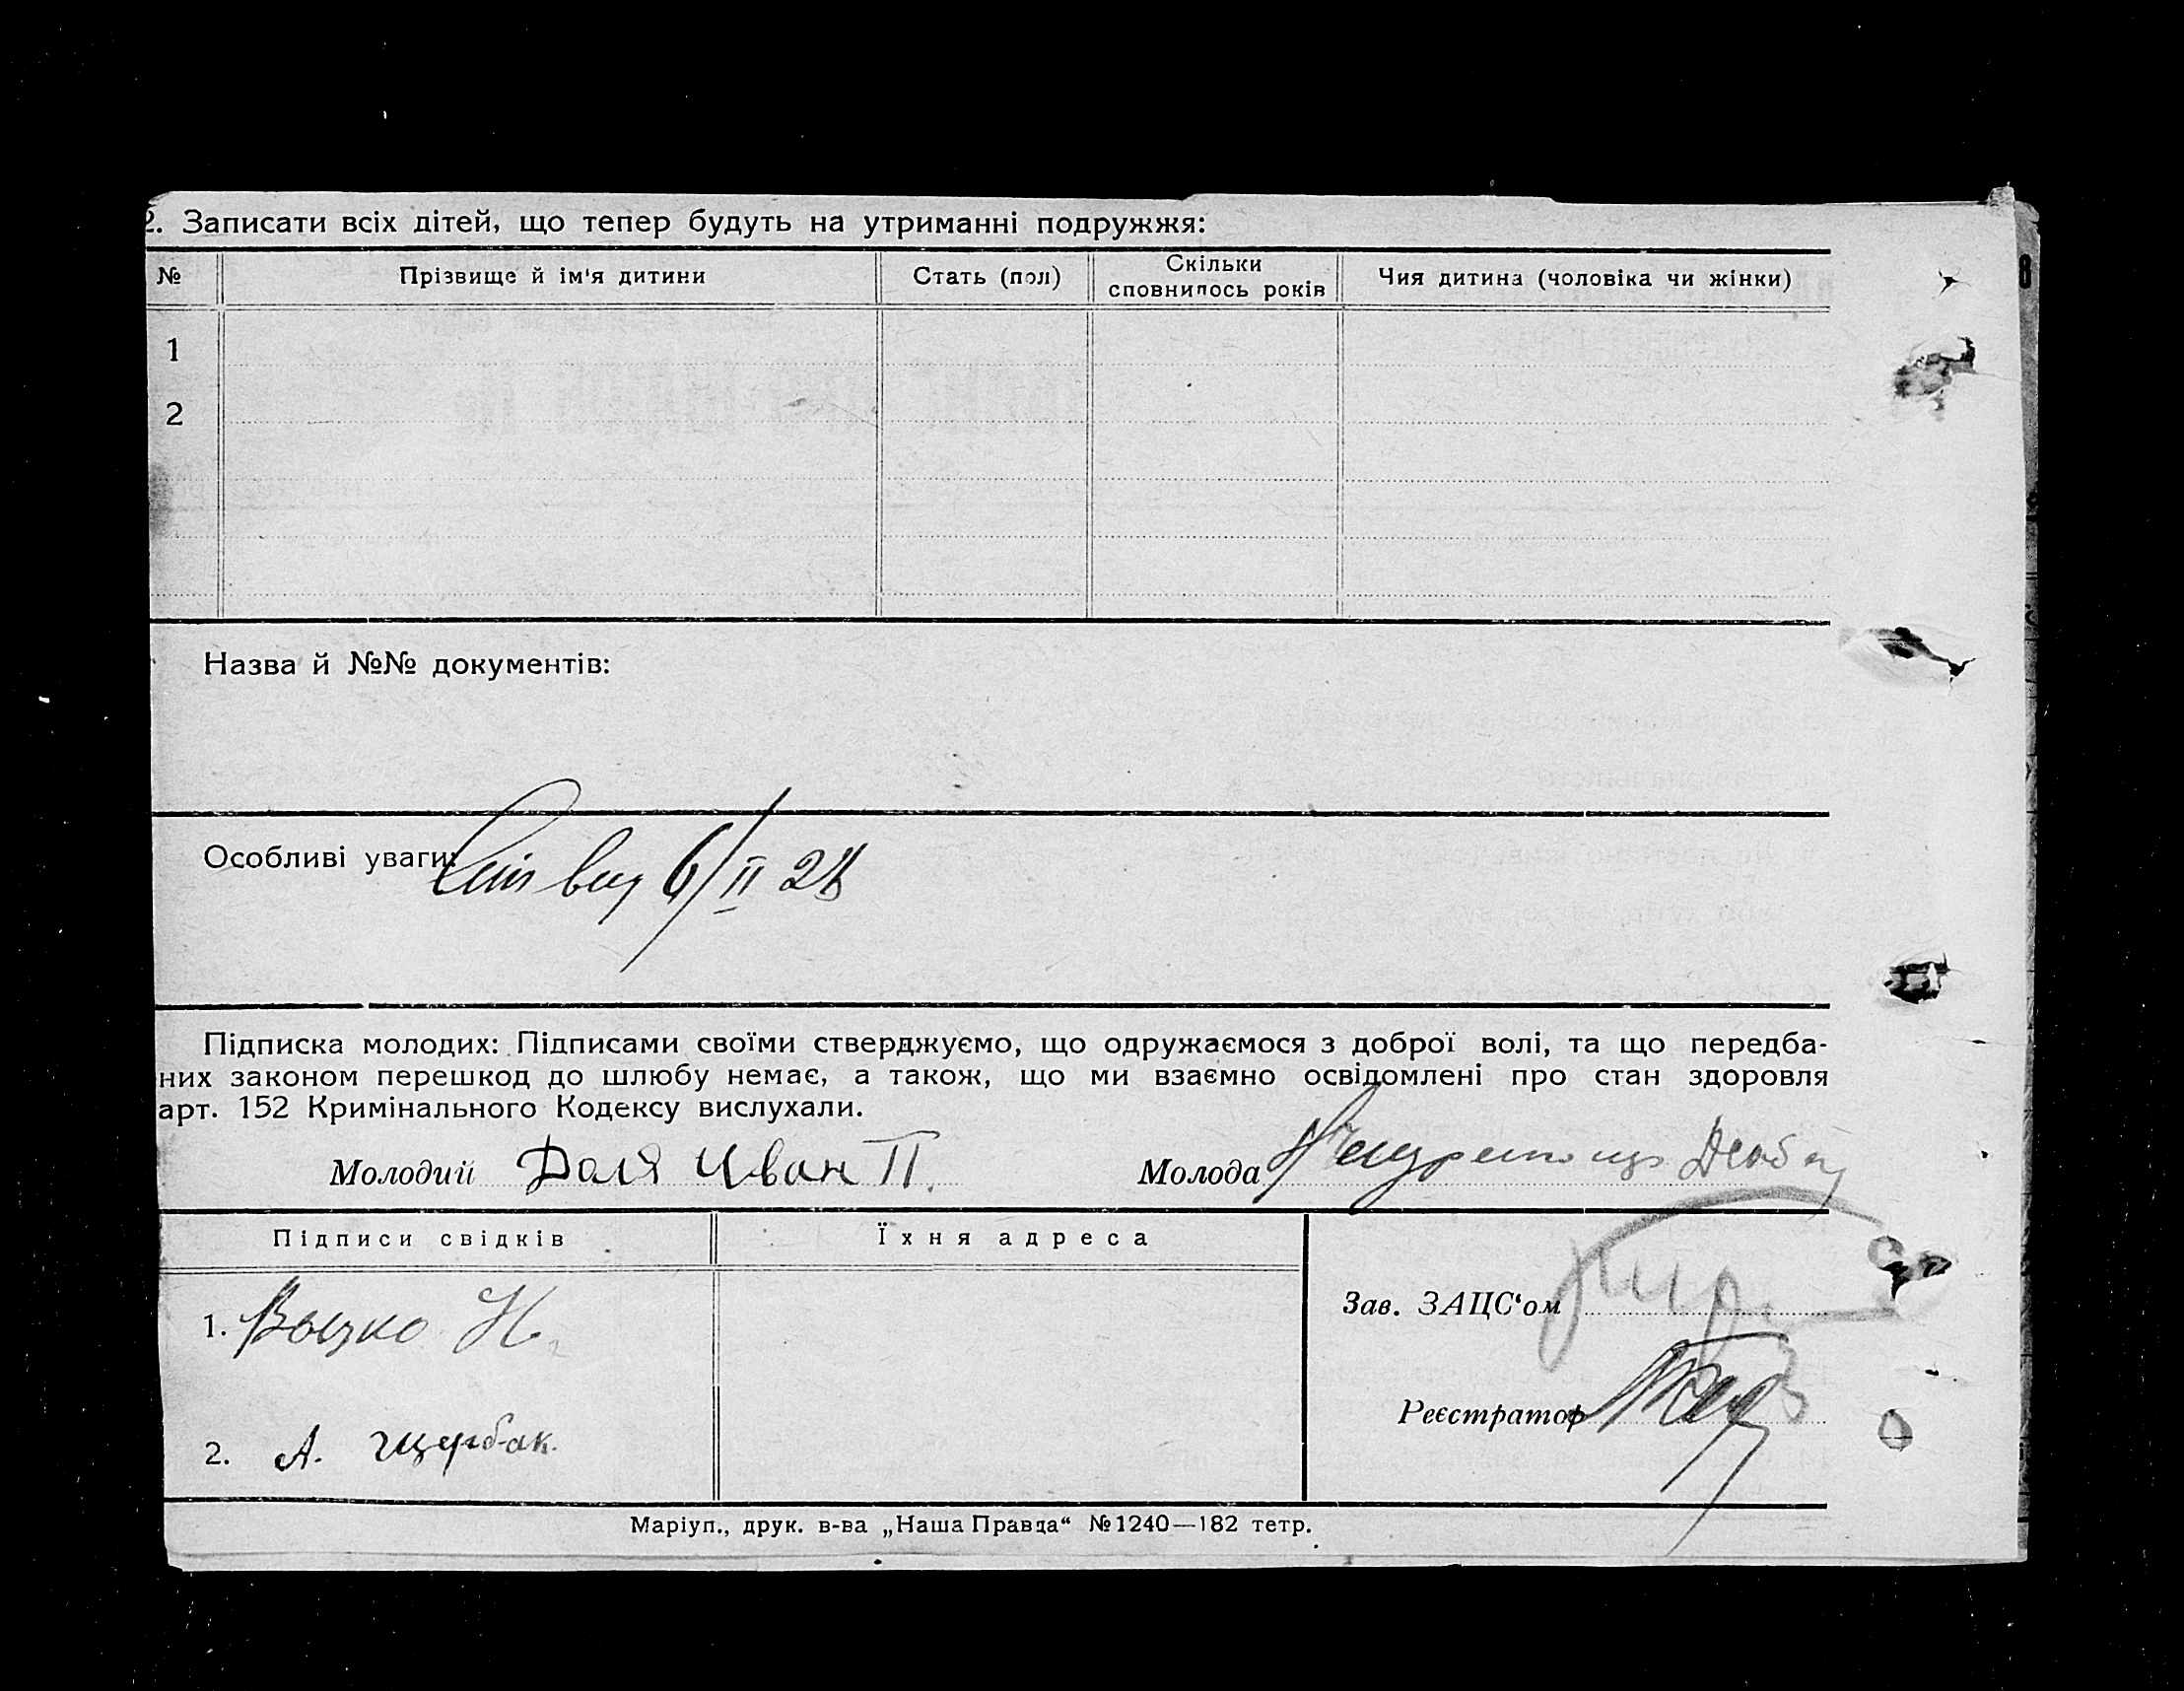 2. Записати всіх дітей, що тепер будуть на утриманні подружжя:
№ Прізвище й ім'я дитини Стать (пол) Скільки сповнилось років Чия дитина (чоловіка чи жінки)
1
2
Назва й №№ документів:
Особливі уваги: 6/II 28
Підписка молодих: Підписами своїми стверджуємо, що одружаємося з доброї волі, та що передба-
них законом перешкод до шлюбу немає, а також, що ми взаємно освідомлені про стан здоровля
арт. 152 Кримінального Кодексу вислухали.
Молодий Доля Иван П. Молода
Підписи свідків Їхня адреса
Зав. ЗАЦС‘ом
1. Н.
Реєстратор
2. А. Щербак.
Маріуп., друк. в-ва „Наша Правда“ №1240—182 тетр.